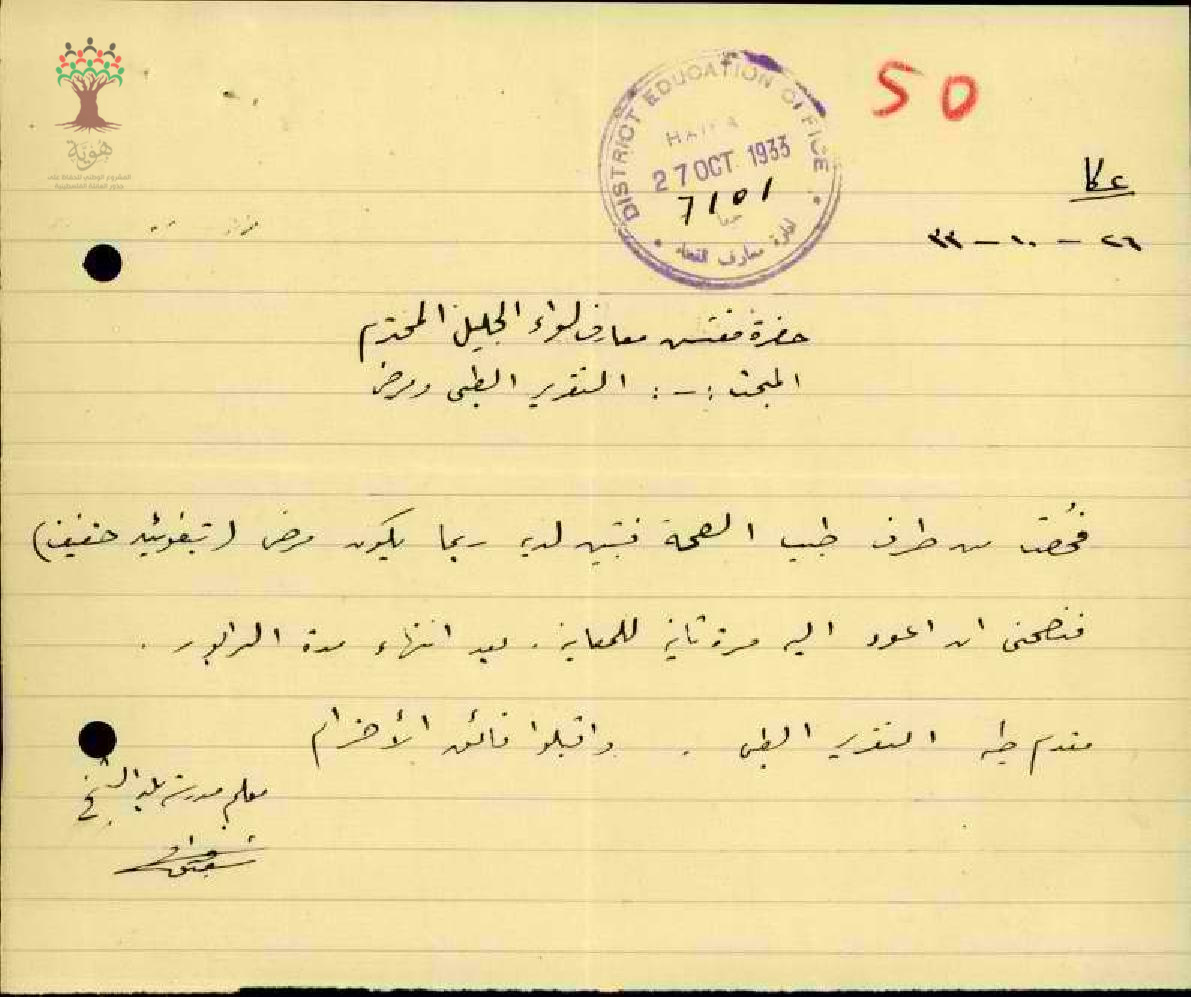 هوية
المشروع الوطني للحفاظ على
جذور العائلة الفلسطينية
DISTRICT EDUCATION OFFICE
HAIFA
27 OCT 1933
7101
حيفا
ادارة معارف القضاء
50
عكا
٢٦ - ١٠ - ٣٣
حضرة مفتش معارف لواء الجليل المحترم
المبحث :- : التقرير الطبي ومرض
فُحصت من طرف طبيب الصحة فتبين لديه ربما يكون مرض (تيفوئيد خفيف)
فنصحني ان اعود اليه مرة ثانية للمعاينة . بعد انتهاء مدة الرابور .
مقدم طيه التقرير الطبي . واقبلوا فائق الأحترام
معلم مدرسة بلد الشيخ